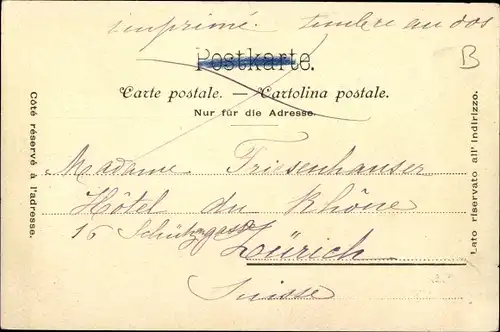 imprimé. timbre au dos
B
Postkarte.
Carte postale. — Cartolina postale.
Nur für die Adresse.
Côté réservé à l'adresse.
Lato riservato all' indirizzo.
Madame Friesenhauser
Hôtel du Rhône
16 Schützgasse
Zürich
Suisse